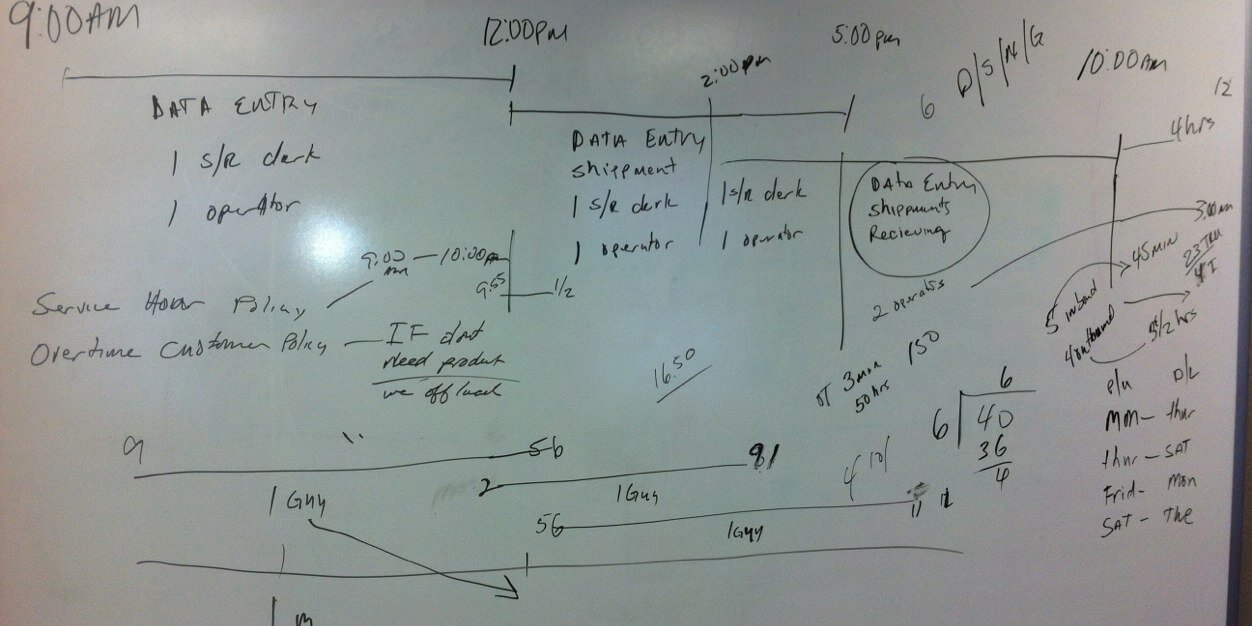 9:00AM
12:00pm
2:00pm
5:00pm
6
D/S/N/G
10:00am
12
4hrs
DATA ENTRY
1 S/R clerk
1 operator
DATA ENTRY
shippment
1 S/R clerk
1 operator
1 S/R clerk
1 operator
DATA Entry
Shippments
Recieving
2 operators
9:00 am — 10:00pm
9:55
1/2
Service Hour Policy
Overtime Customer Policy — IF don't
Need product
we off load
16.50
OT 3 men 150
50 hrs
5 inbound
45 MIN
4 outbound
3 1/2 hrs
6
6 40
36
4
P/U D/L
Mon - thur
thur - SAT
Frid - Mon
SAT - the
9
56
1 Guy
2
1 Guy
56
1 Guy
11
4 10/
1 m